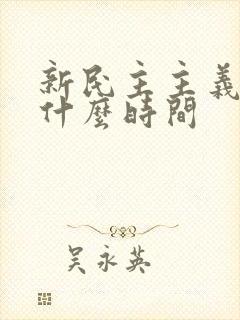 新民主主義
什麼時間
吴永英